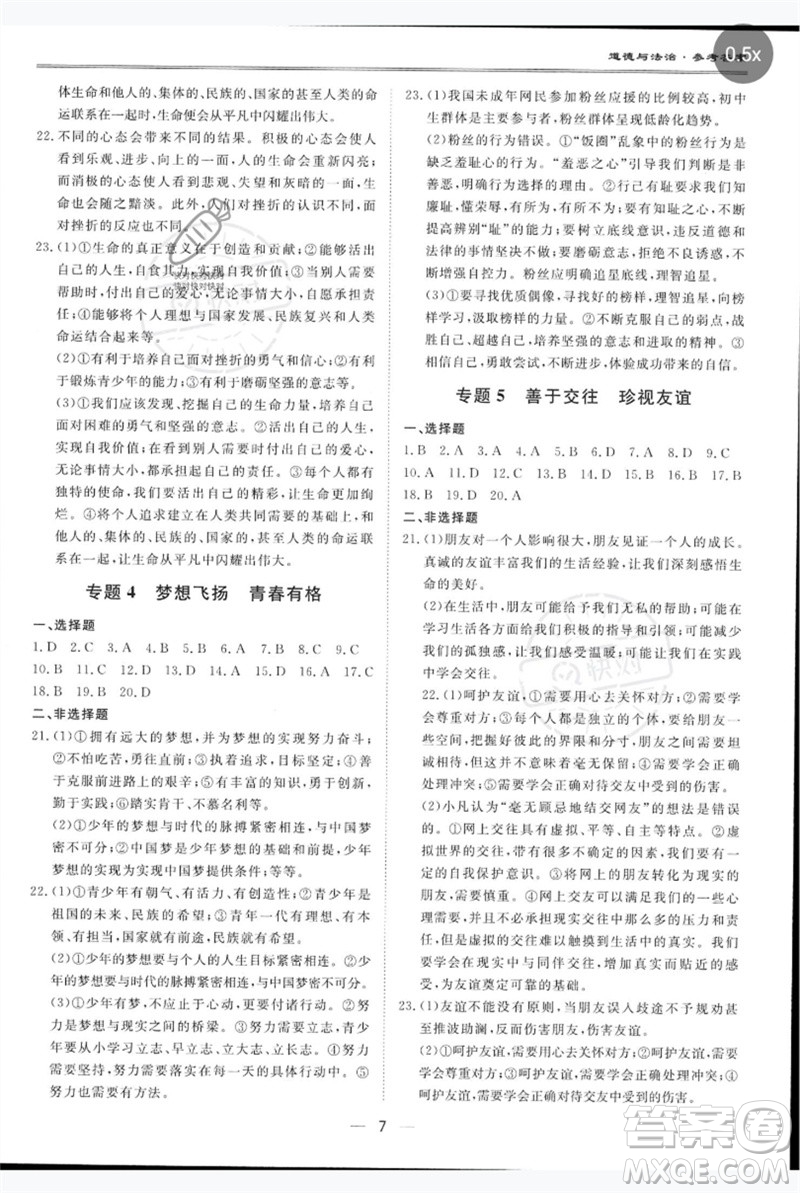 道德与法治·参考答案
0.5x
体生命和他人的、集体的、民族的、国家的甚至人类的命
运联系在一起时，生命便会从平凡中闪耀出伟大。
22. 不同的心态会带来不同的结果。积极的心态会使人
看到乐观、进步、向上的一面，人的生命会重新闪亮；
而消极的心态使人看到悲观、失望和灰暗的一面，生
命会因此黯淡。此外，人们对挫折的认识不同，面
对挫折的反应也不同。
23. (1)①生命的真正意义在于创造和贡献；②能够活出
自己的人生，自食其力，实现自我价值；③当别人需要
帮助时，付出自己的爱心，无论事情大小，承担自己的
责任；④能够将个人理想与国家发展、民族复兴和人类
命运结合起来等。
(2)①有利于培养自己面对挫折的勇气和信心；②有利
于锻炼青少年的能力；③有利于磨砺坚强的意志等。
(3)①我们应该发现、挖掘自己的生命力量，培养自己
面对困难的勇气和坚强的意志。②看到他人的需要，
在他人需要帮助的时候，我们要付出自己的爱心，
无论事情大小，承担自己的责任。③我们每个人都有
独特的使命，我们要活出自己的精彩，让生命变得绚
烂。④将个人追求建立在人类共同需要的基础上，和
他人的、集体的、民族的、国家的，甚至人类的命运联
系在一起，让生命从平凡中闪耀出伟大。
专题 4 梦想飞扬 青春有格
一、选择题
1. D 2. C 3. A 4. A 5. D 6. D 7. B 8. B 9. C
10. B 11. C 12. B 13. D 14. B 15. A 16. A 17. C
18. B 19. B 20. D
二、非选择题
21. (1)①拥有远大的梦想，并为梦想的实现努力奋斗；
②不怕吃苦，勇往直前；③执着追求，目标坚定；④善
于克服前进路上的艰辛；⑤有丰富的知识，勇于创新，
勤于实践；⑥踏实肯干、不屈不挠等。
(2)①少年的梦想与时代的脉搏紧密相连，与中国梦
密不可分。②少年的梦想与中国梦紧密相连，少年梦
想的实现为实现中国梦提供有利条件；等等。
22. (1)①青少年有朝气、有活力、有创造性。②青少年是
祖国的未来、民族的希望；③青年一代有理想、有本
领、有担当，国家就有前途，民族就有希望。
(2)①少年的梦想要与个人的人生目标紧密相连。
②少年的梦想要与时代的脉搏紧密相连，与中国梦密不可分。
23. (1)少年有梦，不应止于心动，更要付诸行动。①努力
是梦想与现实之间的桥梁。②努力，需要立志，青少
年从小就要学习立志、早立志、立大志、立长志。③努
力，需要坚持。④努力，不仅需要立志与坚持，还要
努力也需要有方法。
23. (1)我国未成年网民参加粉丝应援的比例较高，初中
生群体参与较多，粉丝群体呈现低龄化趋势。
(2)粉丝的行为错误。①“饭圈”乱象中的粉丝行为是
缺乏羞耻心的行为，“羞恶之心”引导我们判断是非
善恶，明确行为选择的理由。②行己有耻，需要我们知
廉耻，懂荣辱，有所为，有所不为；需要我们有知耻之
心，提高辨别“耻”的能力；我们要树立底线意识，违反道德和
法律的事情坚决不做。③我们要磨砺意志，拒绝不良诱惑，不断
增强自控能力。粉丝们要明确追星底线，理智追星。
(3)①要寻找优质偶像，寻找好的榜样，理智追星，向榜
样学习，获取榜样的力量。②不断克服自己的弱点，战
胜自己，超越自己；坚强的意志和进取的精神。③
相信自己，勇敢尝试，不断体验成功带来的自信。
专题 5 善于交往 珍视友谊
一、选择题
1. B 2. D 3. A 4. B 5. C 6. D 7. B 8. D 9. C
10. A 11. D 12. A 13. C 14. D 15. C 16. D 17. B
18. B 19. D 20. A
二、非选择题
21. (1)朋友对一个人影响很大，见证一个人的成长。
真诚的友谊丰富了我们的生活经验，让我们深刻感悟生
命的美好。
(2)在生活中，朋友可能影响着我们的言谈举止；在
学习生活各方面给我们积极的指导与引领；可减少我
们的孤独感，让我们感受温暖；可以让我们在实践
中学会交往。
22. (1)①呵护友谊，需要用心去关怀对方；②需要学会
尊重对方；③每个人都是独立的个体，要给朋友
一些空间，把握好彼此的界限和分寸，朋友之间需要坦诚，
但并不意味着毫无保留；④需要学会正确
处理冲突；⑤需要学会正确对待交友中受到的伤害。
(2)小凡认为“毫无顾忌地结交网友”的想法是错误
的。①网上交往具有虚拟、平等、自主等特点。②虚
拟世界的交往，带有很多不确定的因素，我们要有一
定的自我保护意识。③将网上的朋友转化为现实的
朋友，需要慎重。④网上交友可以让我们暂时逃避
现实交往中那么多的压力和责任，
但是虚拟的交往难以触摸到生活中的真实。⑤我们
要学会在现实中与同伴交往，体验真实的感受，为
友谊奠定可靠的基础。
23. (1)友谊不能没有原则，当朋友误入歧途不予规劝甚
至推波助澜，反而伤害朋友、伤害友谊。
(2)①呵护友谊，需要用心去关怀对方；②呵护友谊，
需要学会尊重对方；③呵护友谊，需要学会正确处理
冲突；④呵护友谊，需要学会正确对待交友中受到的
伤害。
7
快对
答案圈
MXQE.COM